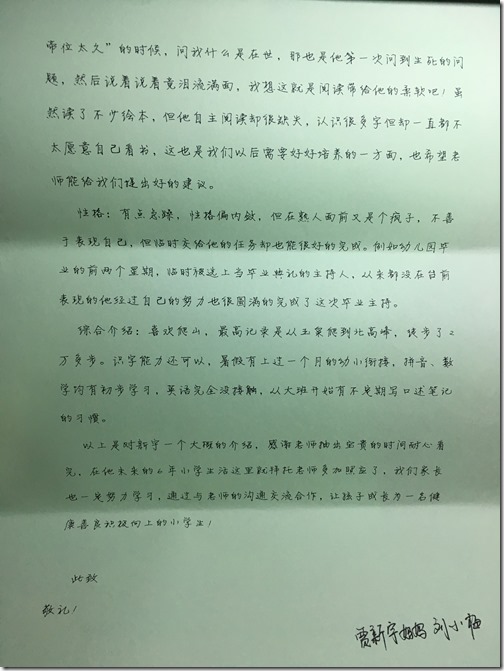 帝位太久”的时候，问我什么是在世，那也是他第一次问到生死的问
题，然后说着说着竟泪流满面，我想这就是阅读带给他的柔软吧！虽
然读了不少绘本，但他自主阅读却很缺失，认识很多字但却一直都不
太愿意自己看书，这也是我们以后需要好好培养的一方面，也希望老
师能给我们提出好的建议。
性格：有点急躁，性格偏内敛，但在熟人面前又是个疯子，不善
于表现自己，但临时交给他的任务却也能很好的完成。例如幼儿园毕
业的前两个星期，临时被选上当毕业典礼的主持人，从来都没在台前
表现的他经过自己的努力也很圆满的完成了这次毕业主持。
综合介绍：喜欢爬山，最高记录是从玉泉爬到北高峰，徒步了2
万多步。识字能力还可以，暑假有上过一个月的幼小衔接，拼音、数
学均有初步学习，英语完全没接触，从大班开始有不定期写口述笔记
的习惯。
以上是对新宇一个大概的介绍，感谢老师抽出宝贵的时间耐心看
完，在他未来的6年小学生活这里就拜托老师多加照应了，我们家长
也一定努力学习，通过与老师的沟通交流合作，让孩子成长为一名健
康善良积极向上的小学生！
此致
敬礼！
贾新宇妈妈 刘小